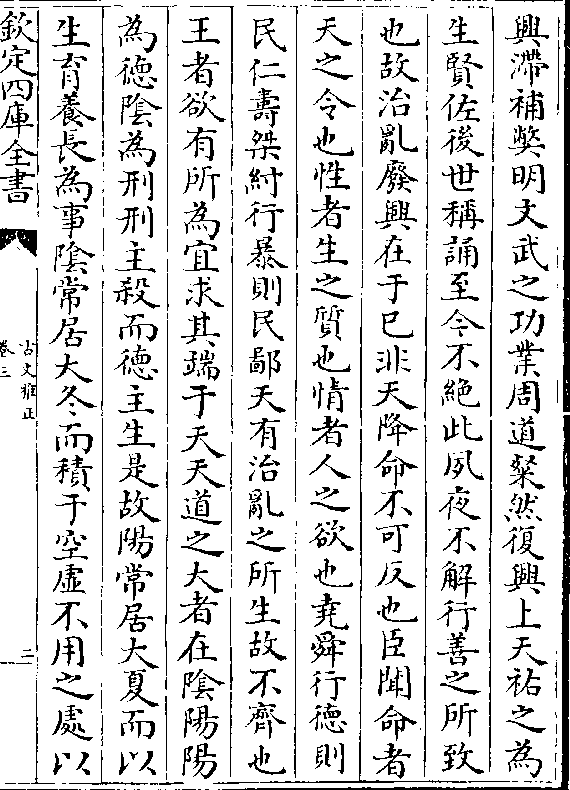 興滯補獘明文武之功業周道粲然復興上天祐之為
生賢佐後世稱誦至今不絶此夙夜不解行善之所致
也故治亂廢興在于已非天降命不可反也臣聞命者
天之令也性者生之質也情者人之欲也堯舜行德則
民仁壽桀紂行暴則民鄙夭有治亂之所生故不齊也
王者欲有所為宜求其端于天天道之大者在陰陽陽
為德陰為刑刑主殺而德主生是故陽常居大夏而以
生育養長為事陰常居大冬而積于空虛不用之處以
欽定四庫全書
古文雅正
卷三
二